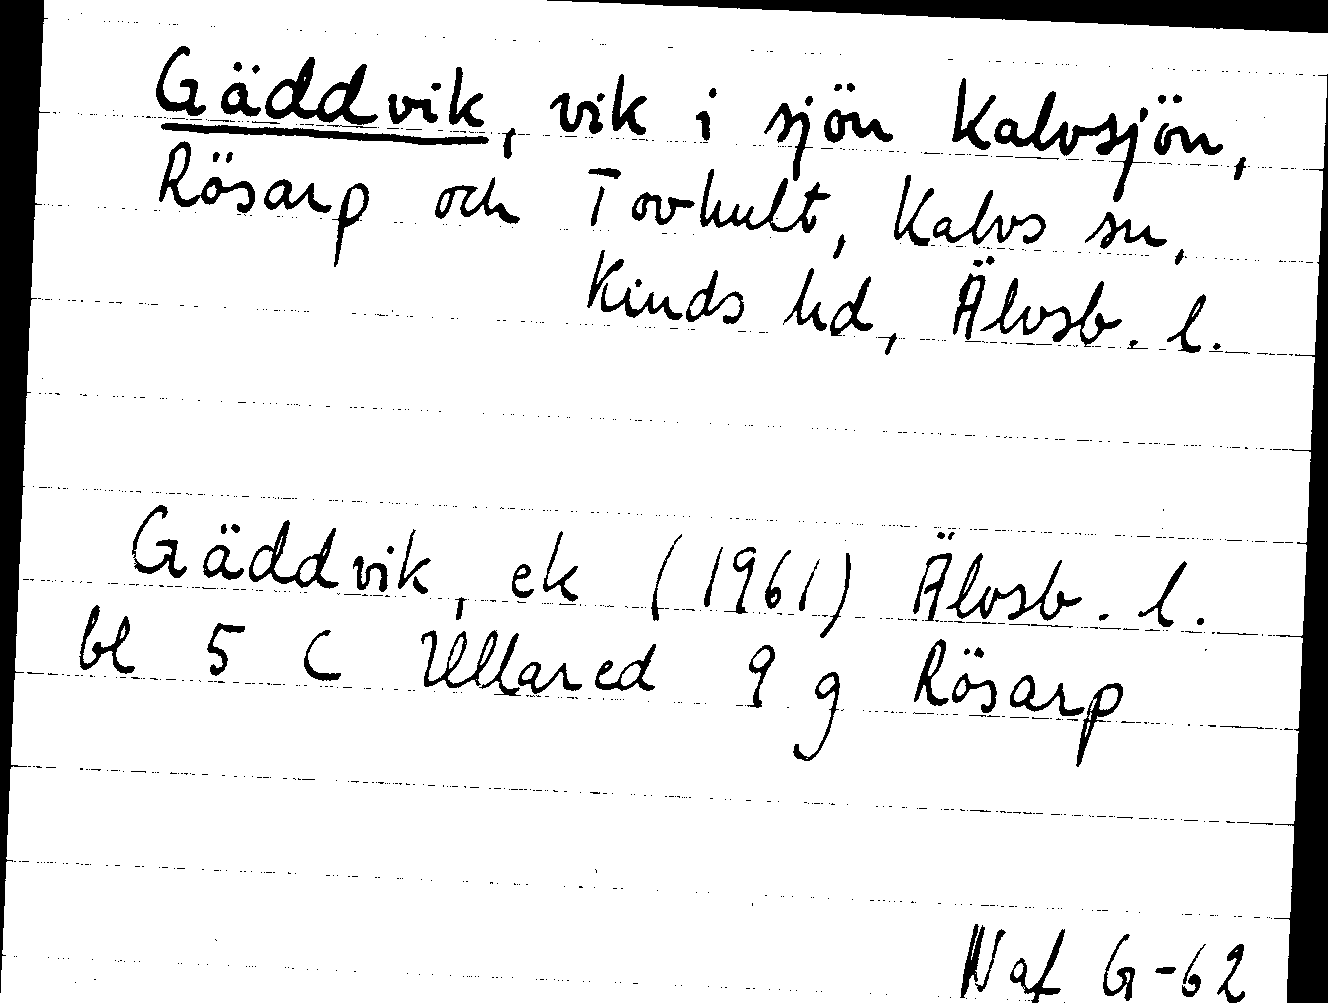 Gäddvik, vik i sjön Kalvsjön,
Rösarp och Tovhult, Kalvs sn,
Kinds hd, Älvsb. l.
Gäddvik, ek (1961) Älvsb. l.
bl 5 C Ullared 9 g Rösarp
Naf G-62